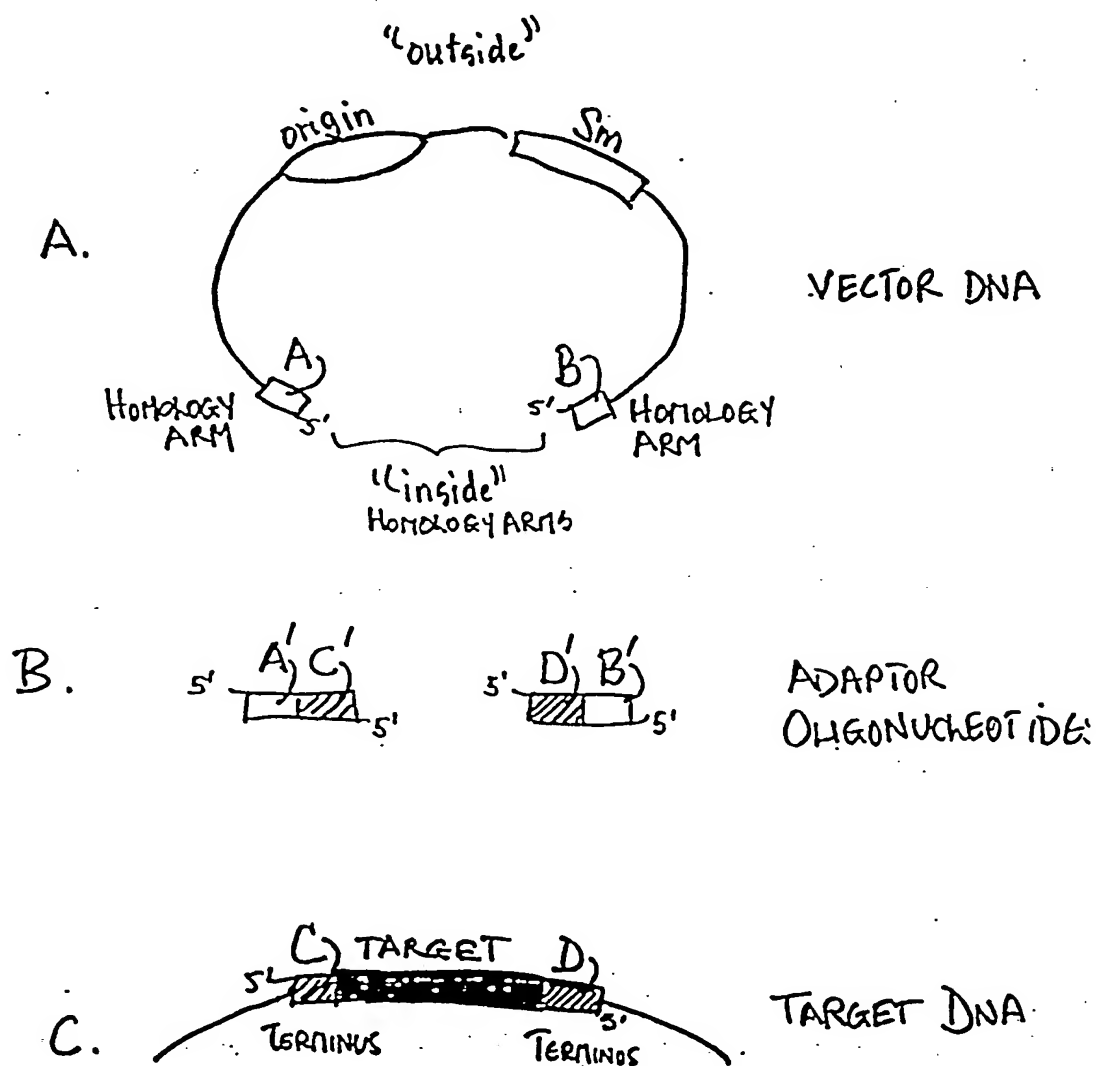 "outside"
origin
Sm
A.
VECTOR DNA
A
B
HOMOLOGY
ARM
5'
5'
HOMOLOGY
ARM
"inside"
HOMOLOGY ARMS
B.
5' A' C' 5'
5' D' B' 5'
ADAPTOR
OLIGONUCLEOTIDE:
C.
5' C TARGET D 5'
TERMINUS
TERMINOS
TARGET DNA